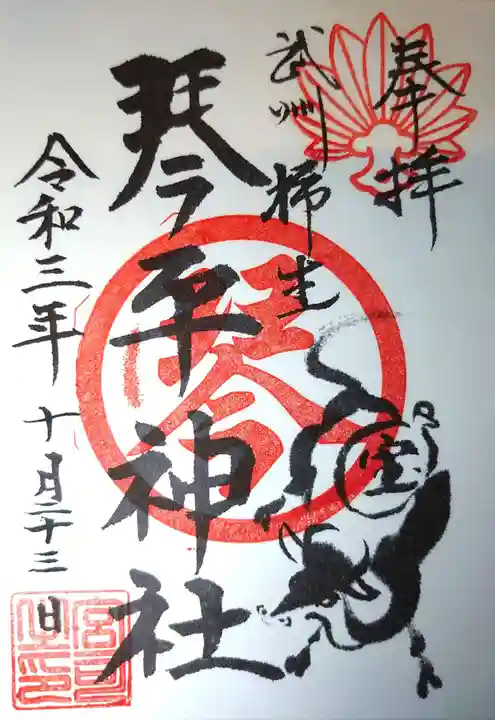 奉拝
武州柿生
琴平神社
令和三年十月二十三日
琴
宝
宮司之印